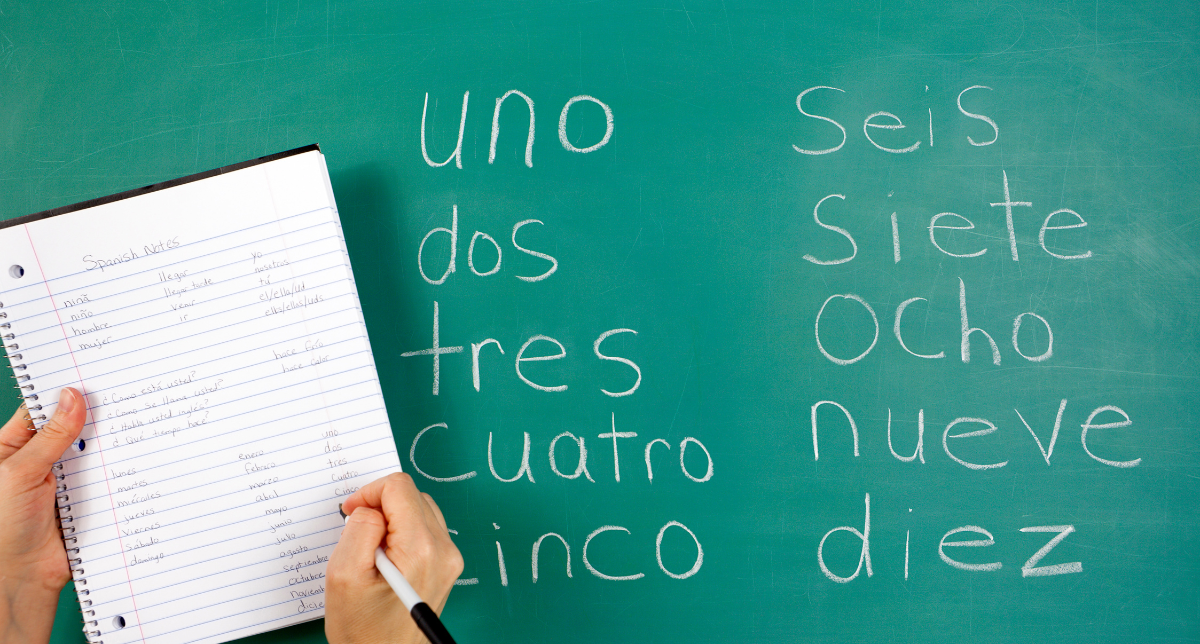 Spanish Notes
niña llegar yo
niño llegar tarde nosotros
hombre venir tú
mujer ir el/ella/ud
ells/ellas/uds
hace frío
hace calor
¿Como está usted?
¿Como se llama usted?
¿Habla usted inglés?
¿Qué tiempo hace?
lunes enero uno
martes febrero dos
miércoles marzo tres
jueves abril cuatro
viernes mayo cinco
sábado junio
domingo julio
agosto
septiembre
octubre
uno
dos
tres
cuatro
cinco
seis
siete
ocho
nueve
diez